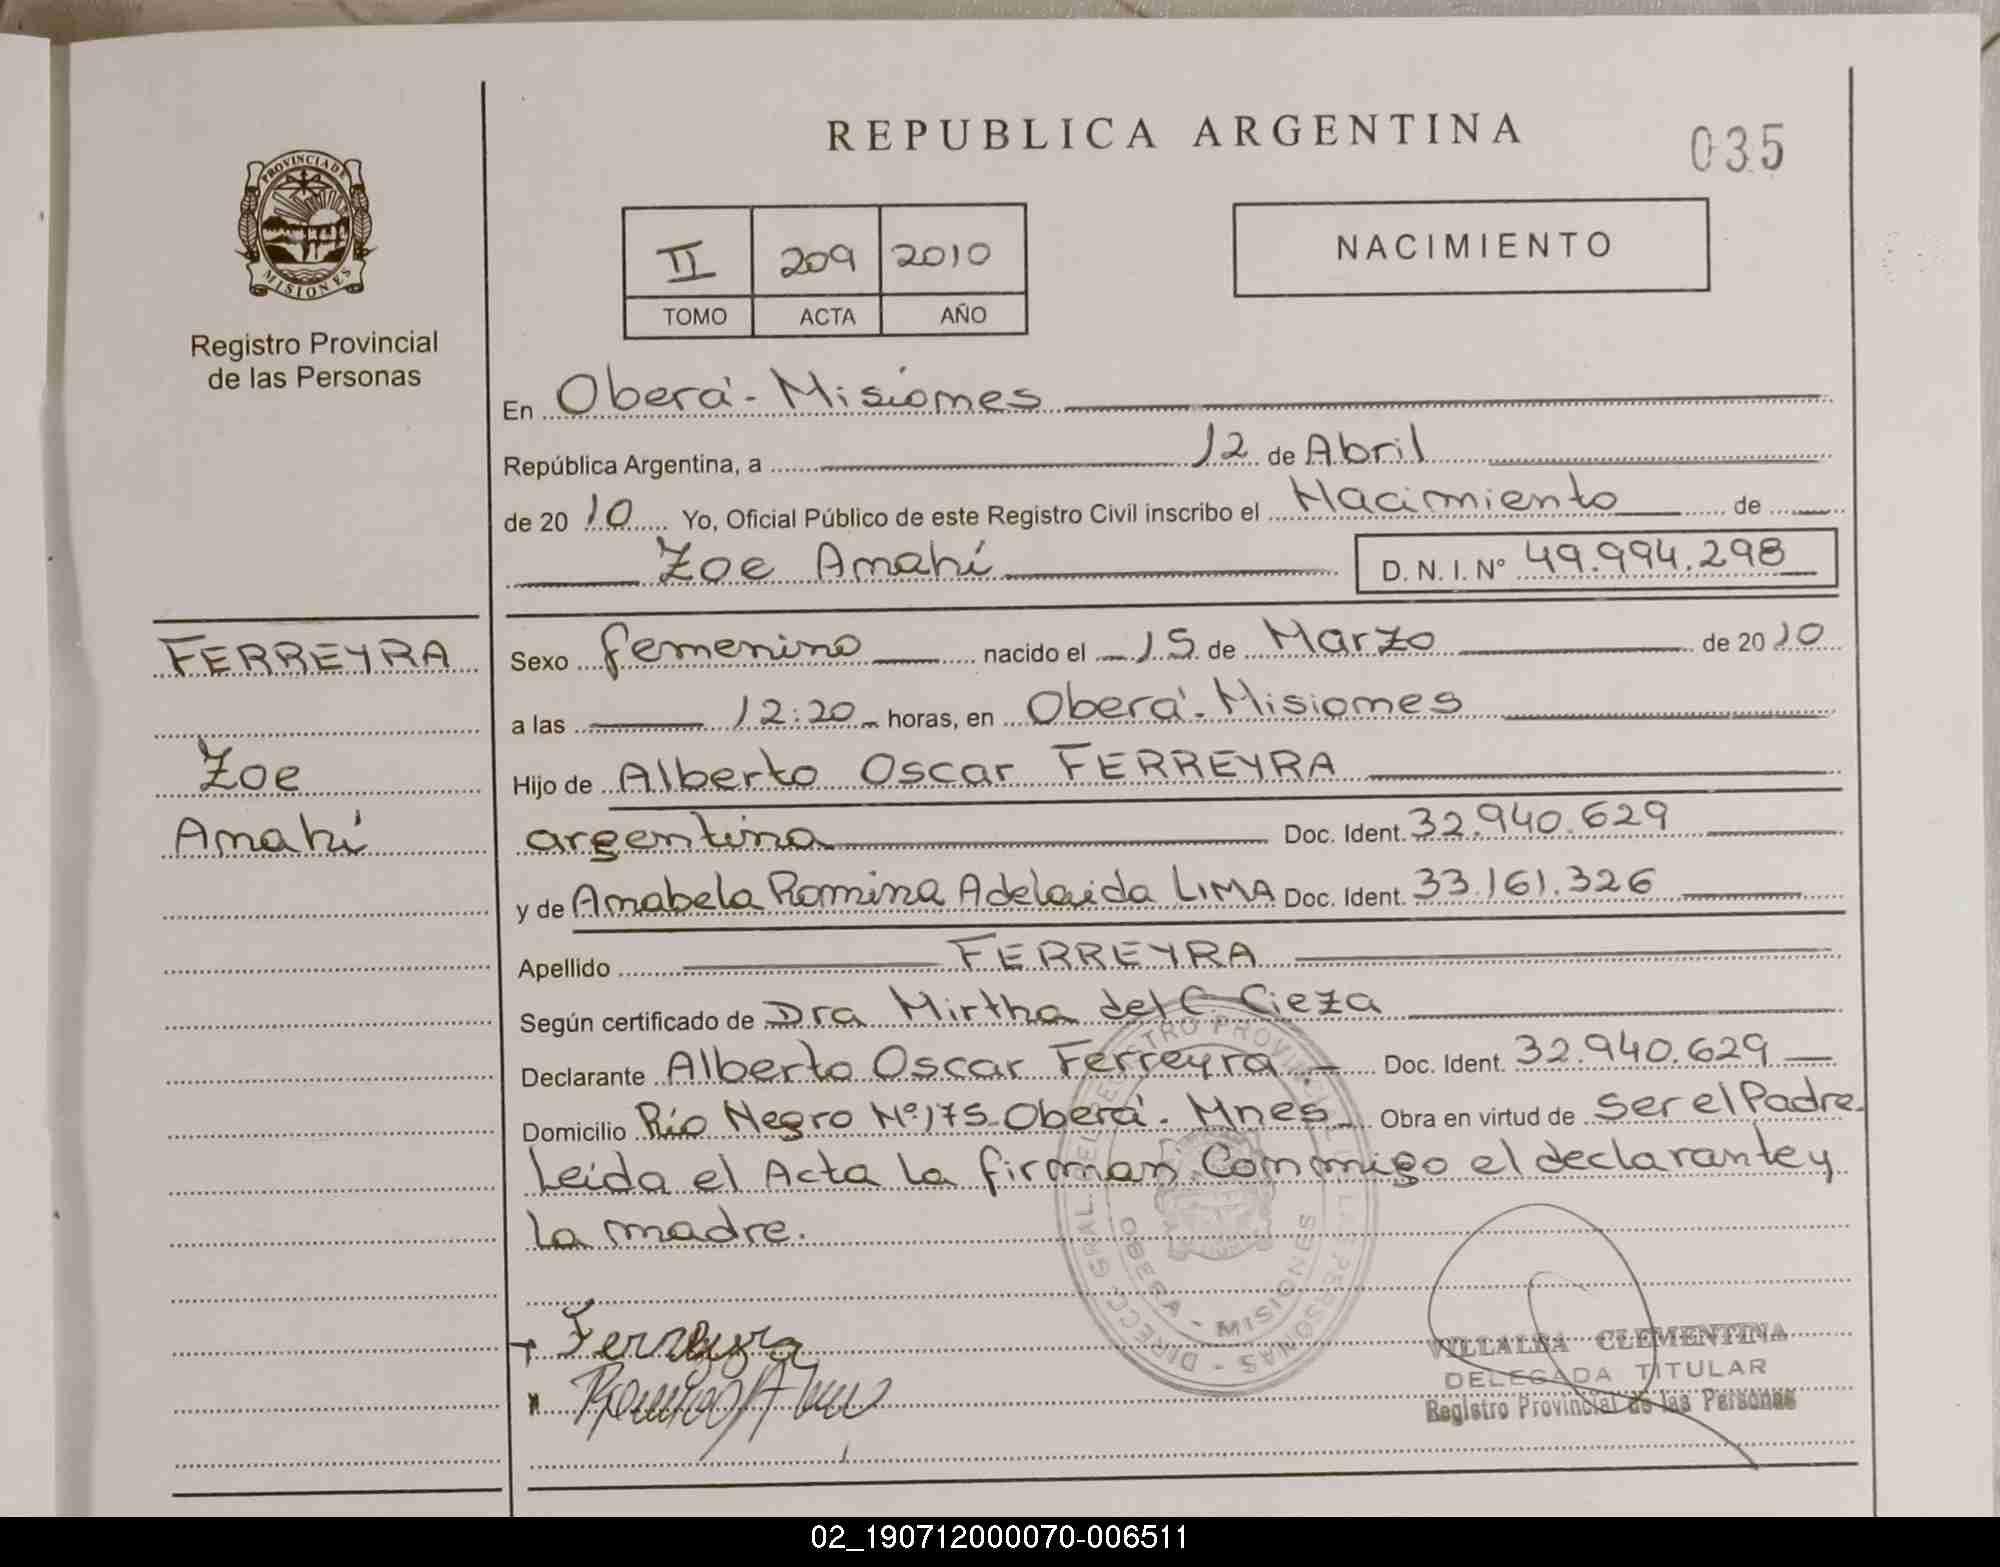 PROVINCIA DE
MISIONES
Registro Provincial
de las Personas
FERREYRA
Zoe
Anahí
REPUBLICA ARGENTINA
035
II 209 2010
TOMO ACTA AÑO
NACIMIENTO
En Oberá - Misiones
República Argentina, a 12 de Abril
de 20 10 Yo, Oficial Público de este Registro Civil inscribo el Nacimiento de
Zoe Anahí D. N. I. Nº 49.994.298
Sexo femenino nacido el 15 de Marzo de 20 10
a las 12:20 horas, en Oberá - Misiones
Hijo de Alberto Oscar FERREYRA
argentina Doc. Ident. 32.940.629
y de Anabela Romina Adelaida LIMA Doc. Ident. 33.161.326
Apellido FERREYRA
Según certificado de Dra Mirtha del C. Cieza
Declarante Alberto Oscar Ferreyra. Doc. Ident. 32.940.629
Domicilio Río Negro Nº 175 - Oberá - Mnes Obra en virtud de ser el Padre.
Leída el Acta la firman Conmigo el declarante y
la madre.
DIRECC. GRAL. DEL REGISTRO PROVINCIAL DE LAS PERSONAS
OBERA - MISIONES
Ferreyra
VILLALBA CLEMENTINA
DELEGADA TITULAR
Registro Provincial de las Personas
02_190712000070-006511